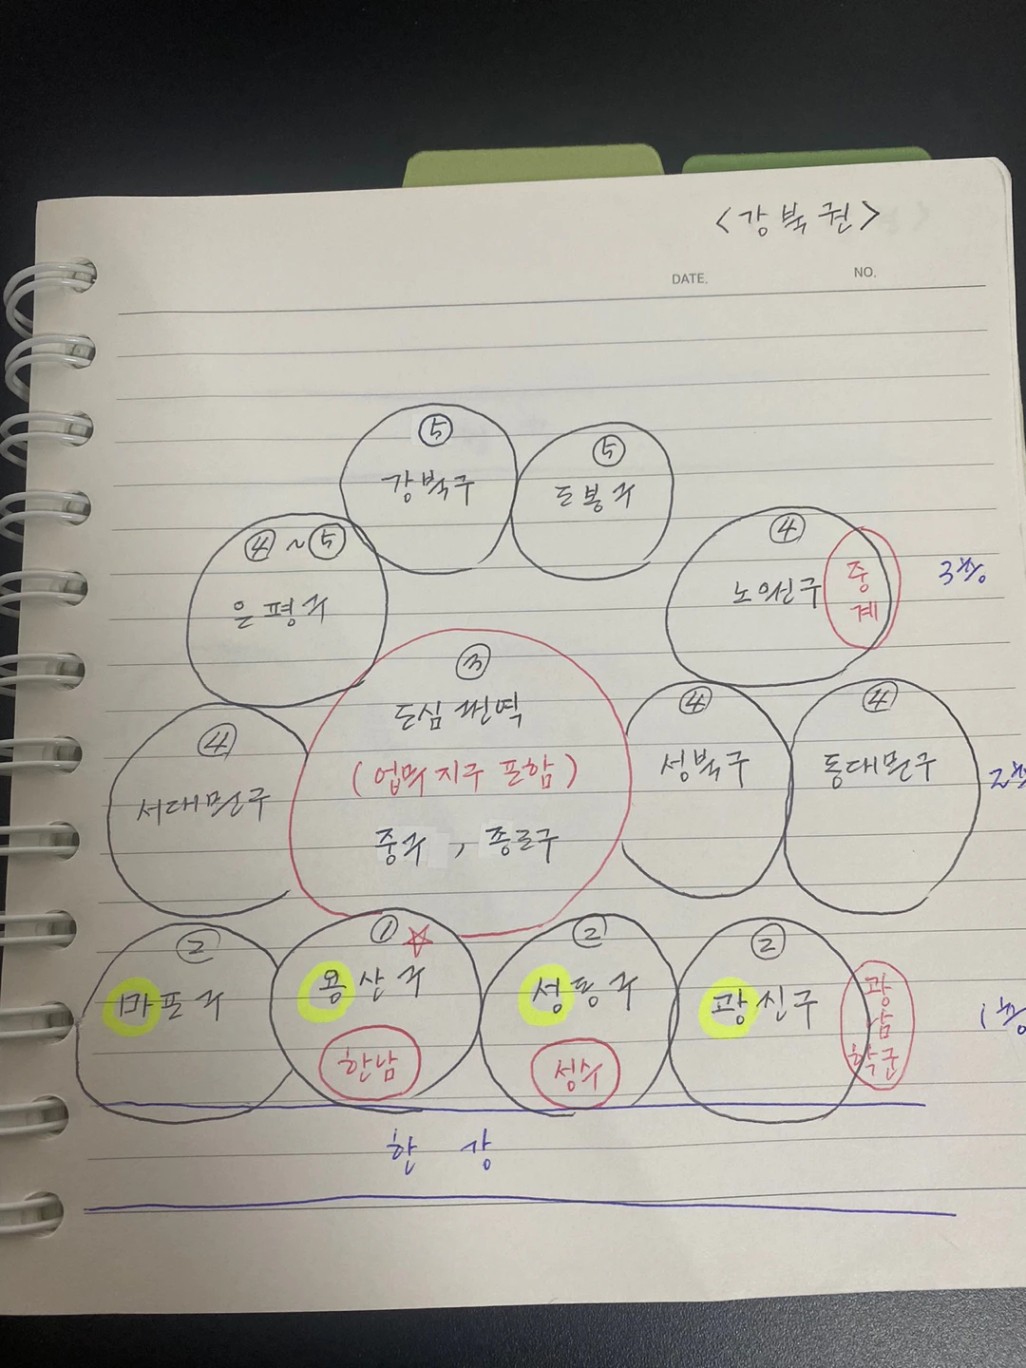 <강북권>
DATE.
NO.
⑤
강북구
⑤
도봉구
④~⑤
은평구
④
노원구
중
계
3차
③
도심권역
(업무지구 포함)
중구, 종로구
④
서대문구
④
성북구
④
동대문구
2차
②
마포구
①☆
용산구
한남
②
성동구
성수
②
광진구
광남
학군
1차
한강